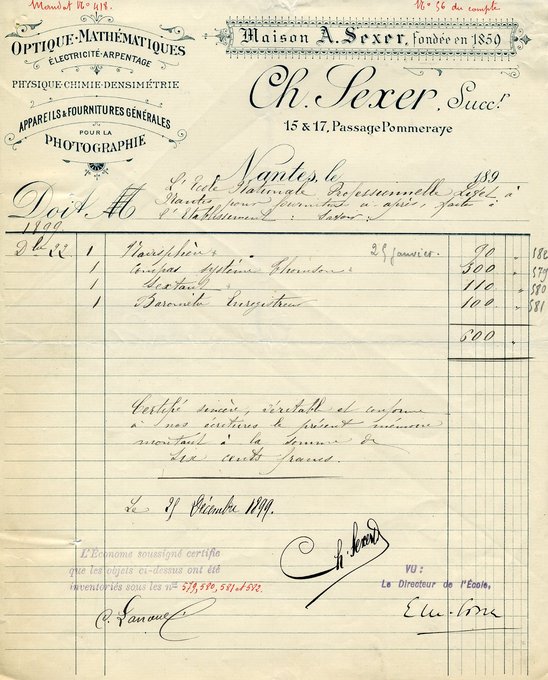 Mandat N° 418.
N° 56 du compte
OPTIQUE-MATHÉMATIQUES
ÉLECTRICITÉ-ARPENTAGE
PHYSIQUE-CHIMIE-DENSIMÉTRIE
APPAREILS & FOURNITURES GÉNÉRALES
POUR LA
PHOTOGRAPHIE
Maison A. Sexer, fondée en 1859
Ch. Sexer, Succr
15 & 17, Passage Pommeraye
Nantes, le 189
Doit M L'École Nationale Professionnelle Livet à
Nantes pour fournitures ci après, faite à
l'Etablissement : Savoir :
1899
Dbre 22 1 25 janvier. 90 " 582
1 Compas système Thomson 300 " 579
1 Sextant 110 " 580
1 Baromètre Enregistreur 100 " 581
600 "
Certifié sincère, véritable et conforme
à nos écritures le présent mémoire
montant à la somme de
Six cents francs.
Le 25 Décembre 1899.
Ch. Sexer
L'Économe soussigné certifie
que les objets ci-dessus ont été
inventoriés sous les nos 579, 580, 581 et 582.
VU :
Le Directeur de l'École,